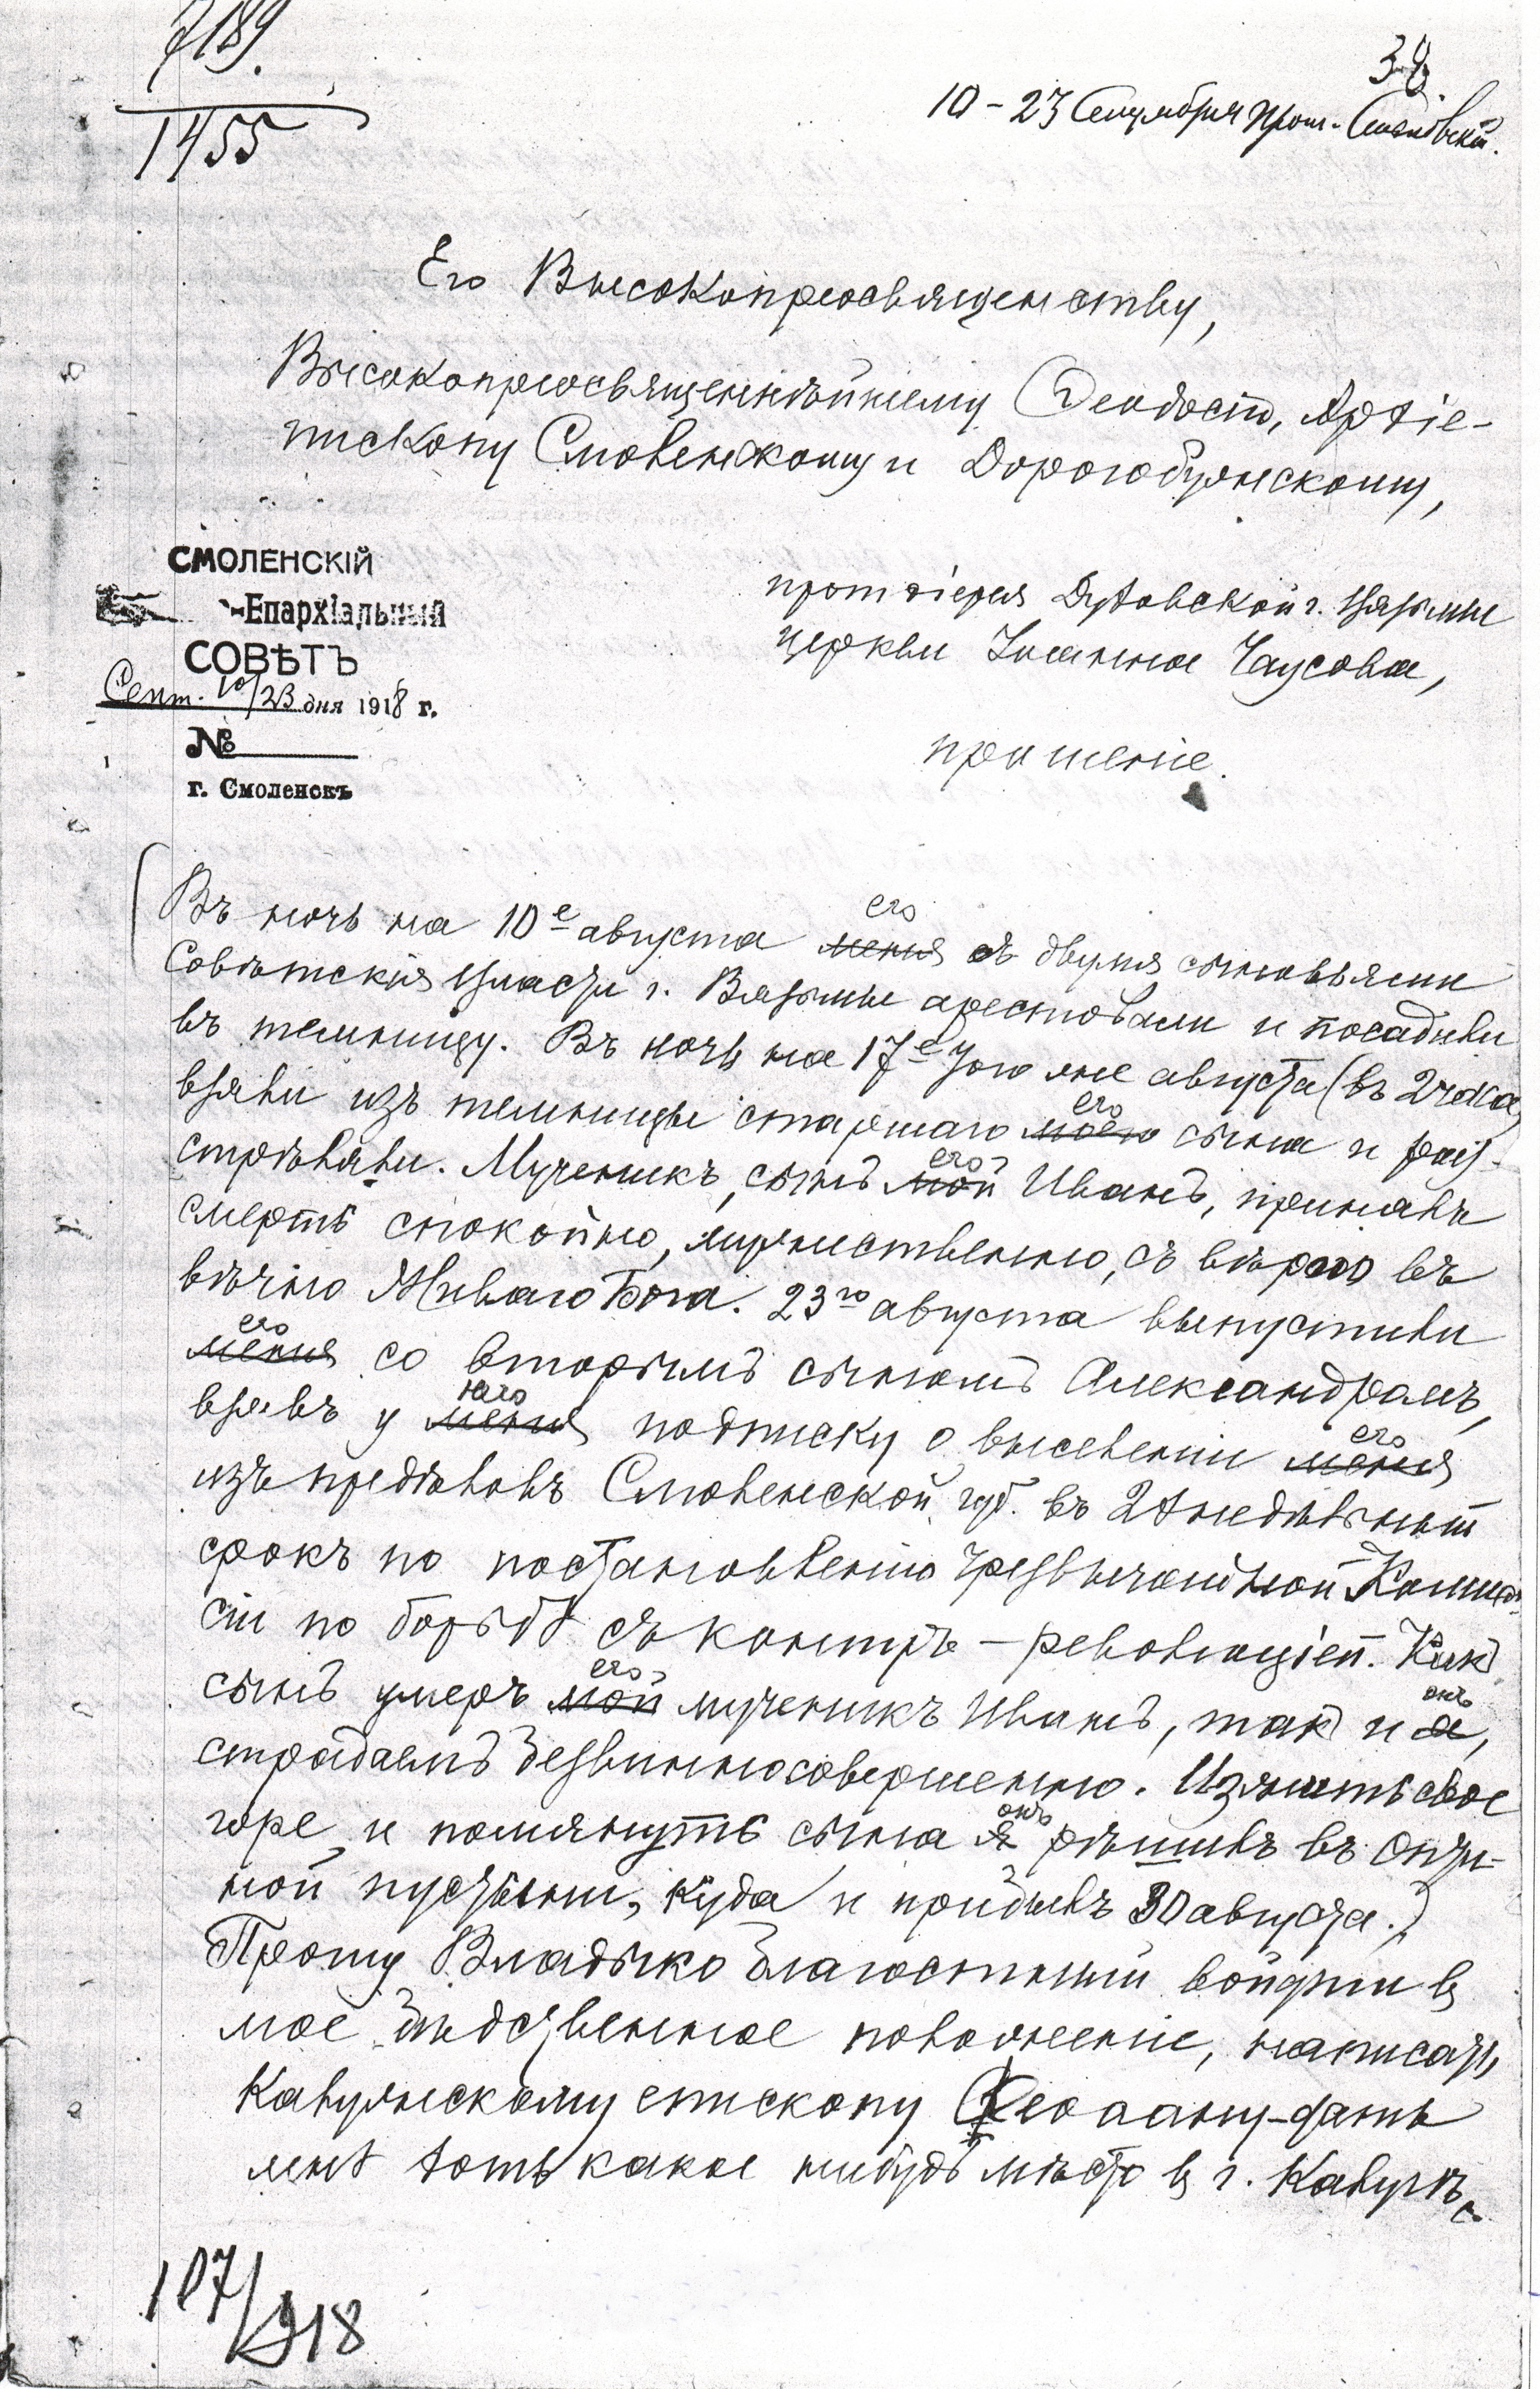 7189.
1455
38
10-23 Сентября прот.
Его Высокопреосвященству,
Высокопреосвященнѣйшему Ѳеодосію, Архіе-
пископу Смоленскому и Дорогобужскому,
СМОЛЕНСКІЙ
Епархіальный
СОВѢТЪ
Сент. 10/23 дня 1918 г.
№
г. Смоленскъ
протоіерея Духовской г. Вязьмы
церкви Іоанна Чаусова,
прошеніе.
Въ ночь на 10е августа меня его съ двумя сыновьями
Совѣтскія власти г. Вязьмы арестовали и посадили
въ темницу. Въ ночь на 17е того же августа (въ 2 часа)
взяли изъ темницы старшаго моего его сына и раз-
стрѣляли. Мученикъ, сынъ мой его Иванъ, принялъ
смерть спокойно, мужественно, съ вѣрою въ
вѣчно Живаго Бога. 23го августа выпустили
меня его со вторымъ сыномъ Александромъ,
взявъ у меня него подписку о выселеніи меня его
изъ предѣловъ Смоленской губ. въ 2хнедѣльный
срокъ по постановленію Чрезвычайной Комис-
сіи по борьбѣ съ контръ-революціей. Какъ
сынъ умеръ мой его мученикъ Иванъ, такъ и я онъ,
страдаемъ безвинно совершенно. Излить свое
горе и помянуть сына я онъ рѣшилъ въ Опти-
ной пустыни, куда и прибылъ 30 августа.)
Прошу Владыко благостный войдти въ
мое бѣдственное положеніе, написать
Калужскому епископу Ѳеофану-дать
мнѣ хоть какое нибудь мѣсто въ г. Калугѣ,
107/918